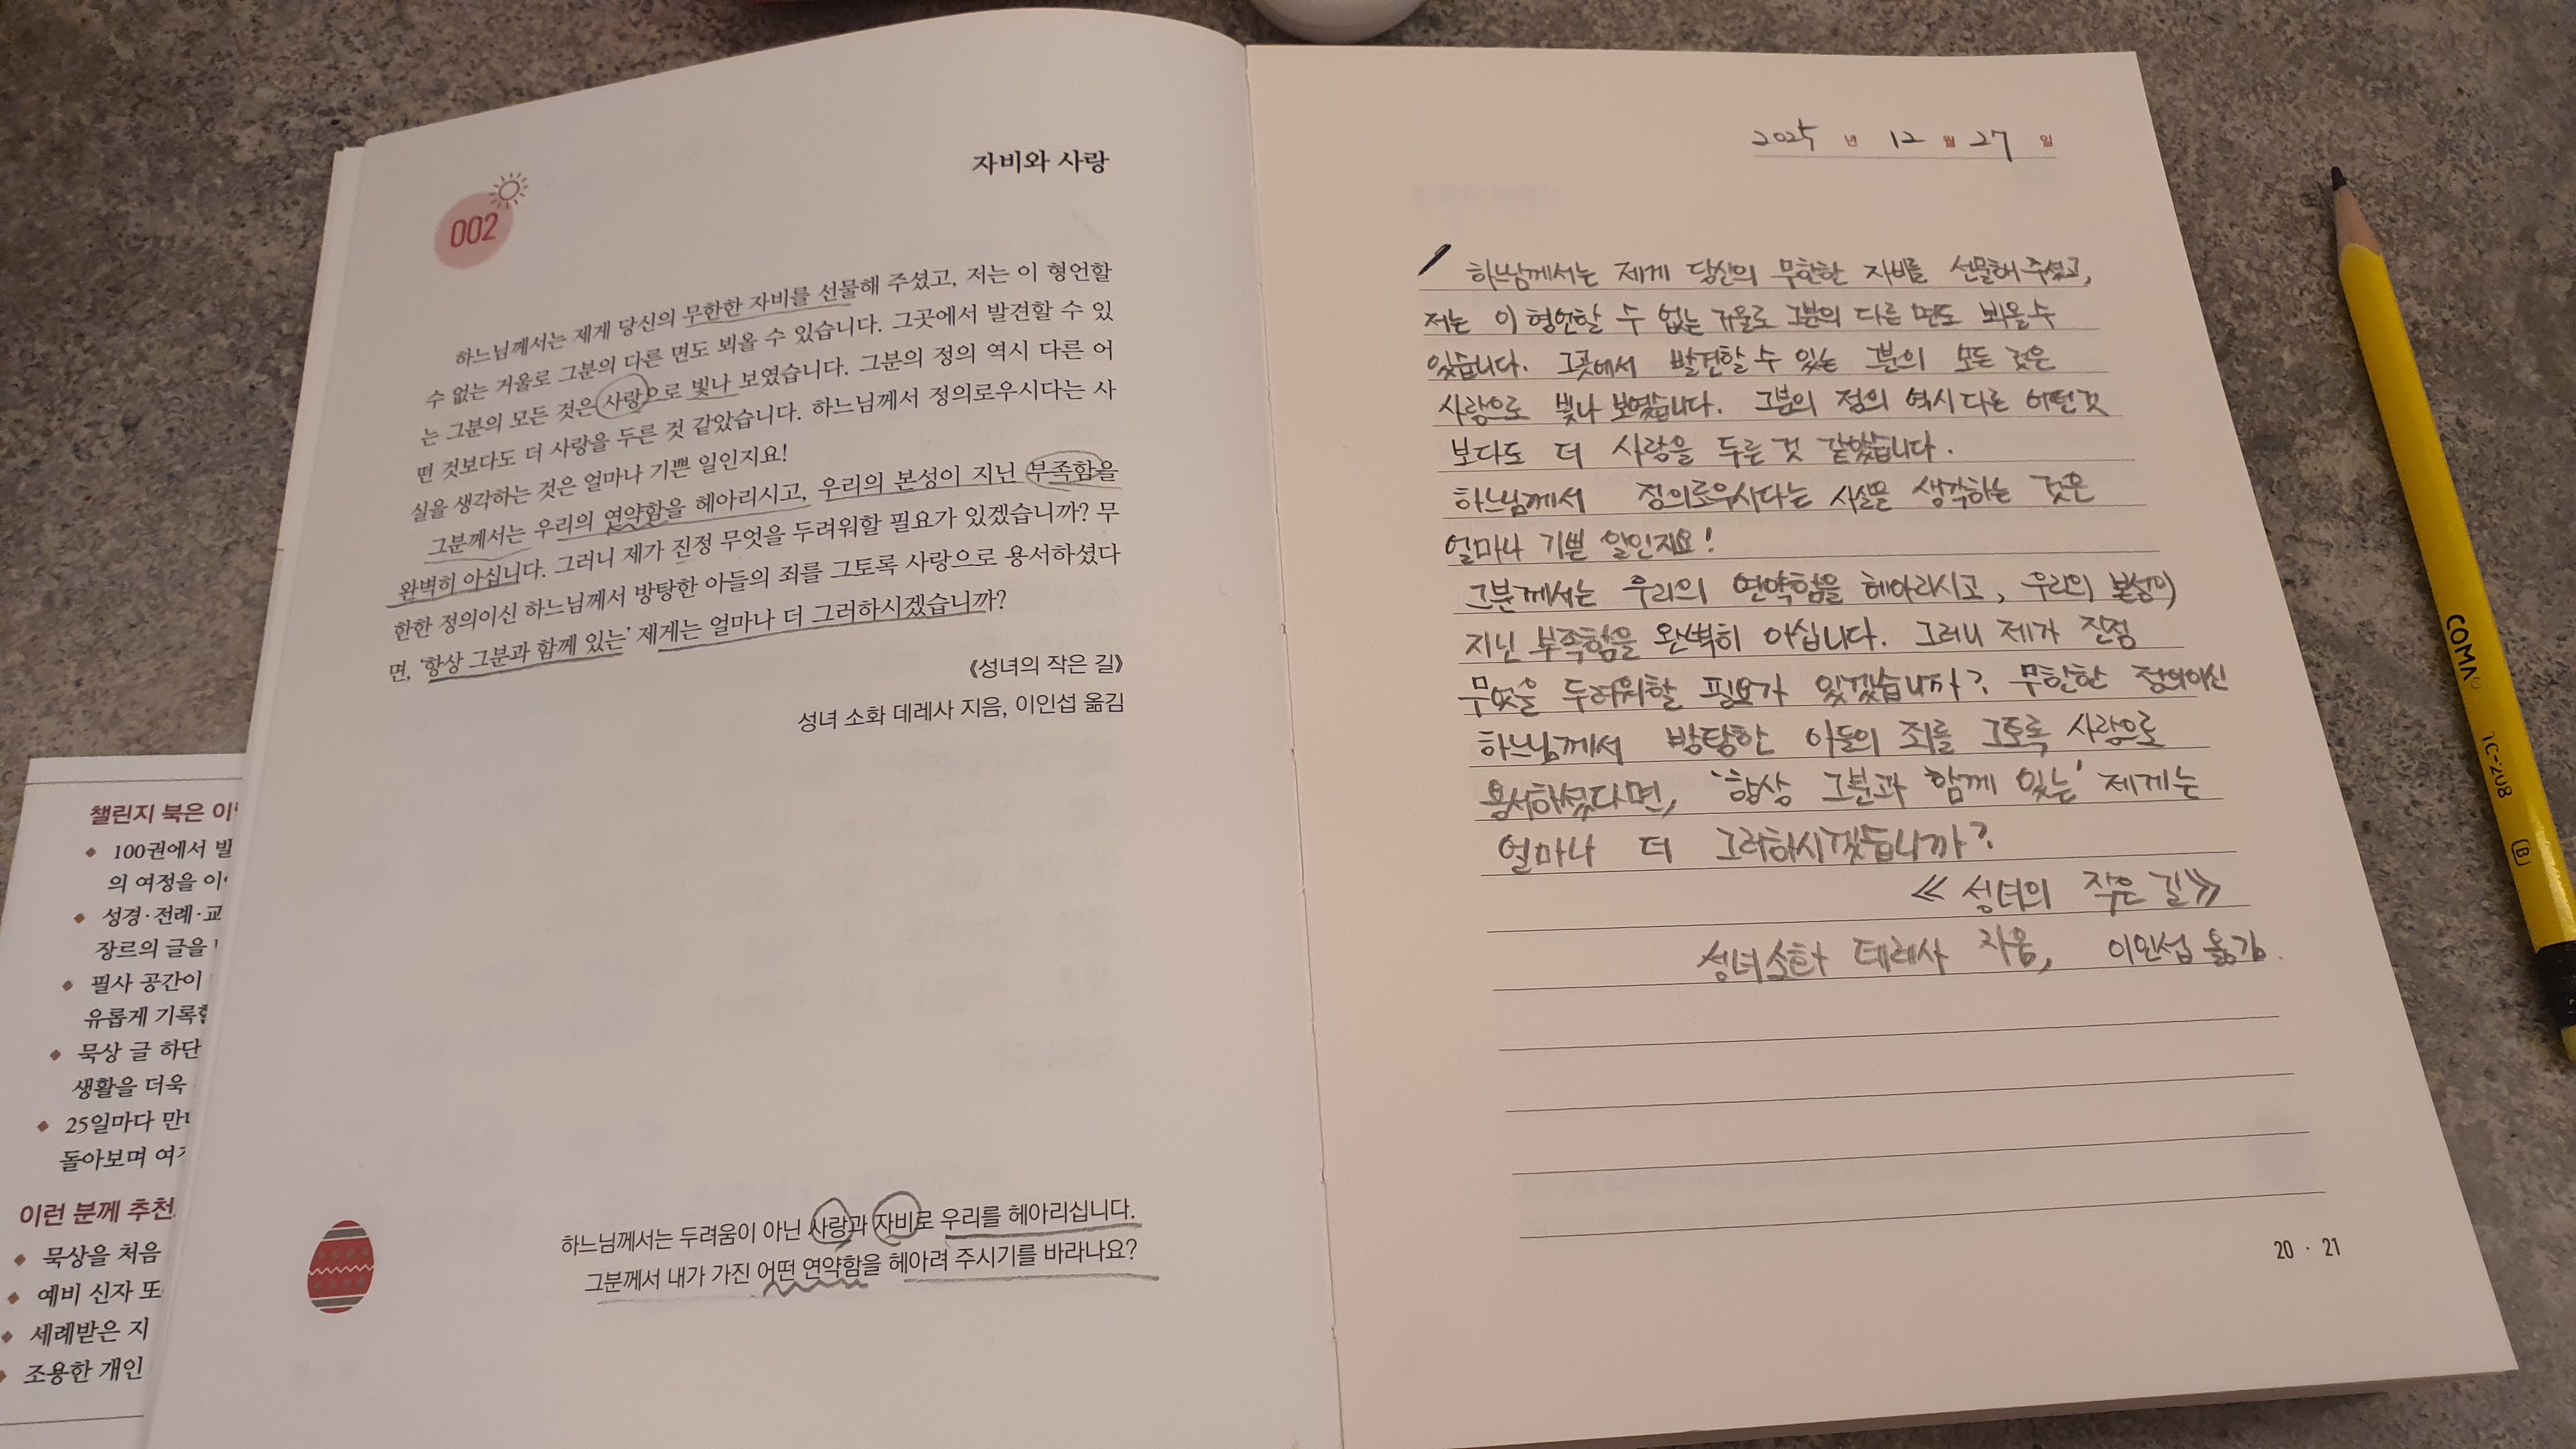 자비와 사랑
002
하느님께서는 제게 당신의 무한한 자비를 선물해 주셨고, 저는 이 형언할
수 없는 거울로 그분의 다른 면도 뵈올 수 있습니다. 그곳에서 발견할 수 있
는 그분의 모든 것은 사랑으로 빛나 보였습니다. 그분의 정의 역시 다른 어
떤 것보다도 더 사랑을 두른 것 같았습니다. 하느님께서 정의로우시다는 사
실을 생각하는 것은 얼마나 기쁜 일인지요!
그분께서는 우리의 연약함을 헤아리시고, 우리의 본성이 지닌 부족함을
완벽히 아십니다. 그러니 제가 진정 무엇을 두려워할 필요가 있겠습니까? 무
한한 정의이신 하느님께서 방탕한 아들의 죄를 그토록 사랑으로 용서하셨다
면, '항상 그분과 함께 있는' 제게는 얼마나 더 그러하시겠습니까?
《성녀의 작은 길》
성녀 소화 데레사 지음, 이인섭 옮김
하느님께서는 두려움이 아닌 사랑과 자비로 우리를 헤아리십니다.
그분께서 내가 가진 어떤 연약함을 헤아려 주시기를 바라나요?
챌린지 북은 이
◆ 100권에서 발
의 여정을 이
◆ 성경·전례·교
장르의 글을
◆ 필사 공간이
유롭게 기록할
◆ 묵상 글 하단
생활을 더욱
◆ 25일마다 만
돌아보며 여
이런 분께 추천
◆ 묵상을 처음
◆ 예비 신자 또
◆ 세례받은 지
◆ 조용한 개인
2025 년 12 월 27 일
하느님께서는 제게 당신의 무한한 자비를 선물해 주셨고,
저는 이 형언할 수 없는 거울로 그분의 다른 면도 뵈올 수
있습니다. 그곳에서 발견할 수 있는 그분의 모든 것은
사랑으로 빛나 보였습니다. 그분의 정의 역시 다른 어떤 것
보다도 더 사랑을 두른 것 같았습니다.
하느님께서 정의로우시다는 사실을 생각하는 것은
얼마나 기쁜 일인지요!
그분께서는 우리의 연약함을 헤아리시고, 우리의 본성이
지닌 부족함을 완벽히 아십니다. 그러니 제가 진정
무엇을 두려워할 필요가 있겠습니까? 무한한 정의이신
하느님께서 방탕한 아들의 죄를 그토록 사랑으로
용서하셨다면, '항상 그분과 함께 있는' 제게는
얼마나 더 그러하시겠습니까?
《성녀의 작은 길》
성녀 소화 데레사 지음, 이인섭 옮김.
20 · 21
COMA TC-208 B